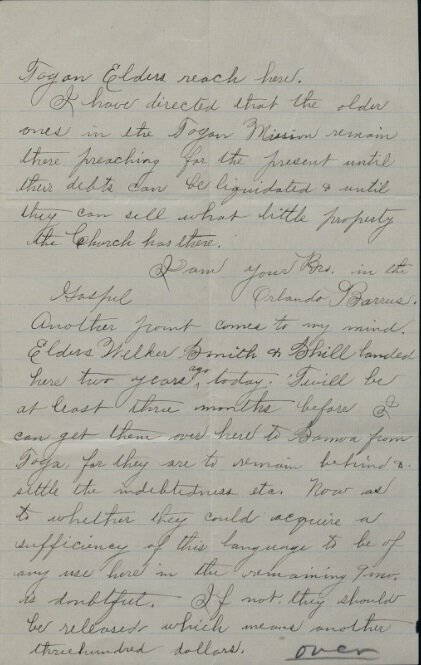 Togan Elders reach here.
I have directed that the older
ones in the Togan Mission remain
there preaching for the present until
their debts can be liquidated & until
they can sell what little property
the Church has there.
I am your Bro. in the
Gospel Orlando Barrus.
Another point comes to my mind.
Elders Welker Smith & Shill landed
here two years ago, today. Twill be
at least three months before I
can get them over here to Samoa from
Toga. for they are to remain behind &
sittle the indebtedness etc. Now as
to whether they could acquire a
sufficiency of this language to be of
any use here in the remaining 9 mo.
is doubtful. If not they should
be released which means another
threehundred dollars. over